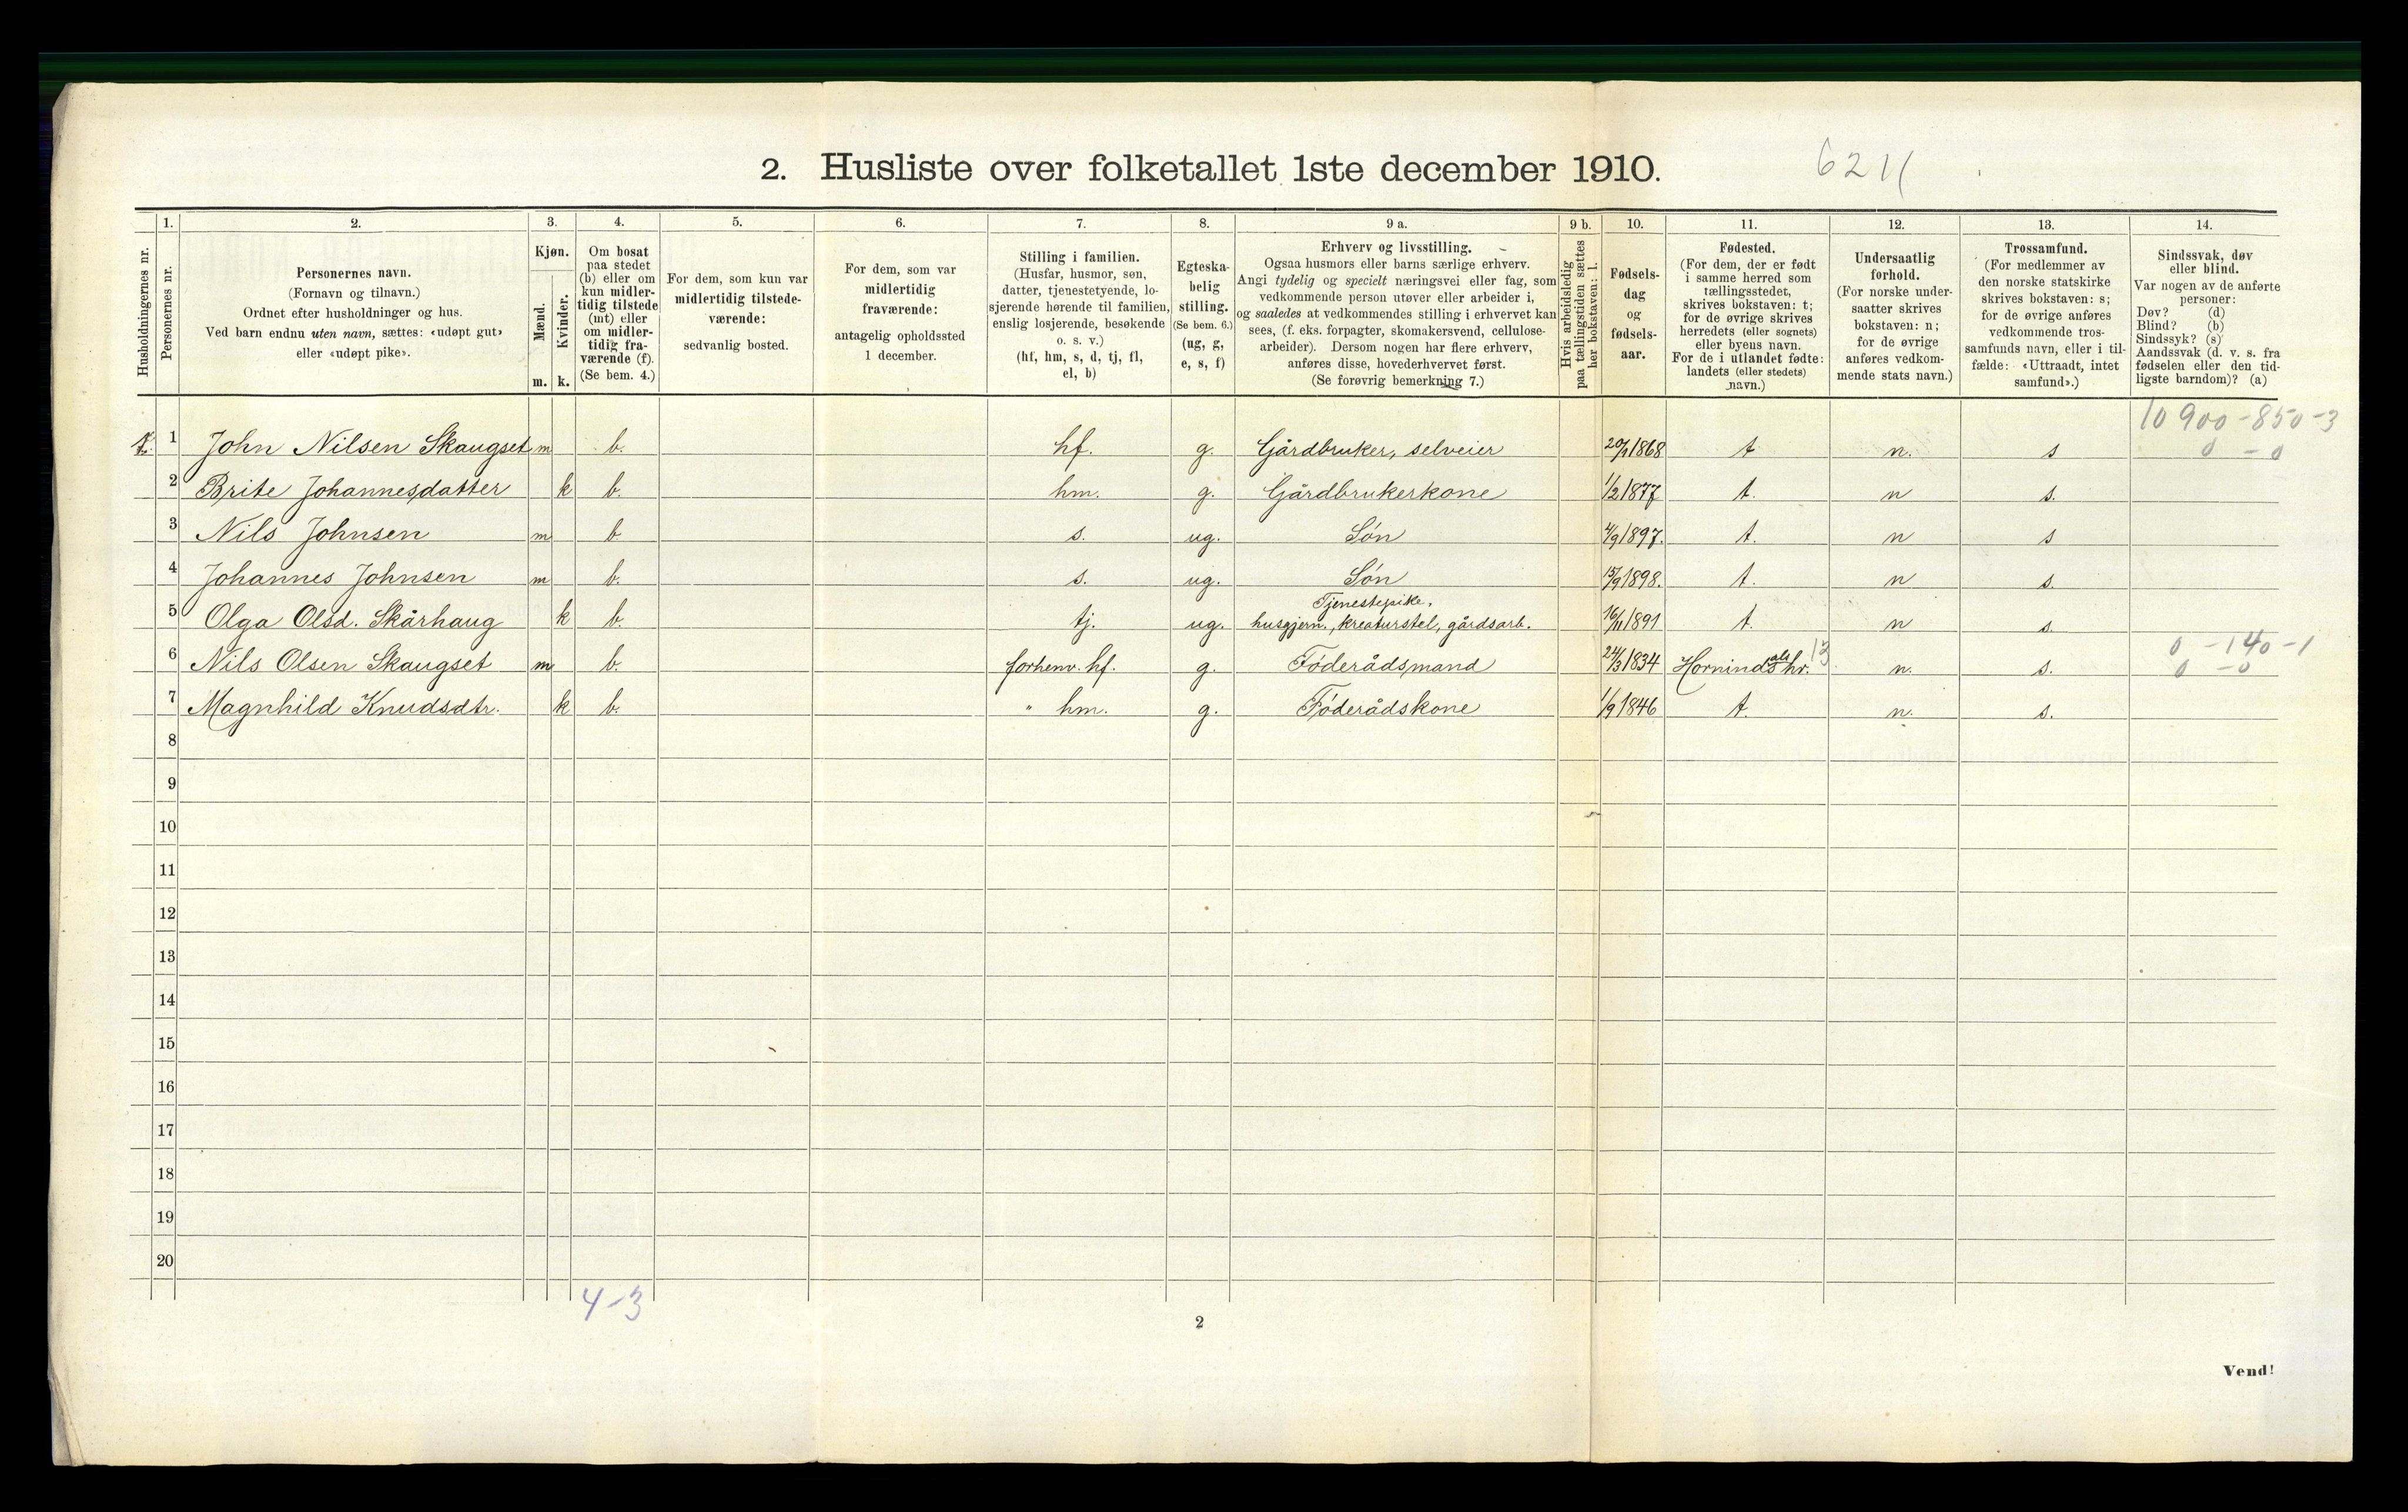 2. Husliste over folketallet 1ste december 1910.
6211
Husholdningernes nr.
1.
Personernes nr.
2.
Personernes navn.
(Fornavn og tilnavn.)
Ordnet efter husholdninger og hus.
Ved barn endnu uten navn, sættes: «udøpt gut»
eller «udøpt pike».
3.
Kjøn.
Mænd.
Kvinder.
m. k.
4.
Om bosat
paa stedet
(b) eller om
kun midler-
tidig tilstede
(mt) eller
om midler-
tidig fra-
værende (f).
(Se bem. 4.)
5.
For dem, som kun var
midlertidig tilstede-
værende:
sedvanlig bosted.
6.
For dem, som var
midlertidig
fraværende:
antagelig opholdssted
1 december.
7.
Stilling i familien.
(Husfar, husmor, søn,
datter, tjenestetyende, lo-
sjerende hørende til familien,
enslig losjerende, besøkende
o. s. v.)
(hf, hm, s, d, tj, fl,
el, b)
8.
Egteska-
belig
stilling.
(Se bem. 6.)
(ug, g,
e, s, f)
9 a.
Erhverv og livsstilling.
Ogsaa husmors eller barns særlige erhverv.
Angi tydelig og specielt næringsvei eller fag, som
vedkommende person utøver eller arbeider i,
og saaledes at vedkommendes stilling i erhvervet kan
sees, (f. eks. forpagter, skomakersvend, cellulose-
arbeider). Dersom nogen har flere erhverv,
anføres disse, hovederhvervet først.
(Se forøvrig bemerkning 7.)
9 b.
Hvis arbeidsledig
paa tællingstiden sættes
her bokstaven: l.
10.
Fødsels-
dag
og
fødsels-
aar.
11.
Fødested.
(For dem, der er født
i samme herred som
tællingsstedet,
skrives bokstaven: t;
for de øvrige skrives
herredets (eller sognets)
eller byens navn.
For de i utlandet fødte:
landets (eller stedets)
navn.)
12.
Undersaatlig
forhold.
(For norske under-
saatter skrives
bokstaven: n;
for de øvrige
anføres vedkom-
mende stats navn.)
13.
Trossamfund.
(For medlemmer av
den norske statskirke
skrives bokstaven: s;
for de øvrige anføres
vedkommende tros-
samfunds navn, eller i til-
fælde: «Uttraadt, intet
samfund».)
14.
Sindssvak, døv
eller blind.
Var nogen av de anførte
personer:
Døv? (d)
Blind? (b)
Sindssyk? (s)
Aandssvak (d. v. s. fra
fødselen eller den tid-
ligste barndom)? (a)
10 900-850-3
1 John Nilsen Skaugset m b. hf. g. Gårdbruker, selveier 20/1 1868 t n. s 0 - 0
2 Brite Johannesdatter k b. hm. g. Gårdbrukerkone 1/2 1877 t. n s.
3 Nils Johnsen m b s. ug. Søn 4/9 1897. t. n s
4 Johannes Johnsen m b. s. ug. Søn 15/9 1898. t. n s.
Tjenestepike,
5 Olga Olsd. Skårhaug k b. tj. ug. husgjern., kreaturstel, gårdsarb. 16/11 1891 t. n s.
0 -140-1
6 Nils Olsen Skaugset m b. forhenv. hf. g. Føderådsmand 24/3 1834 Hornindals hr. 13 n. s. 0 - 0
7 Magnhild Knudsdtr. k b. " hm. g. Føderådskone 1/9 1846 t. n. s.
8
9
10
11
12
13
14
15
16
17
18
19
20
4-3
2
Vend!